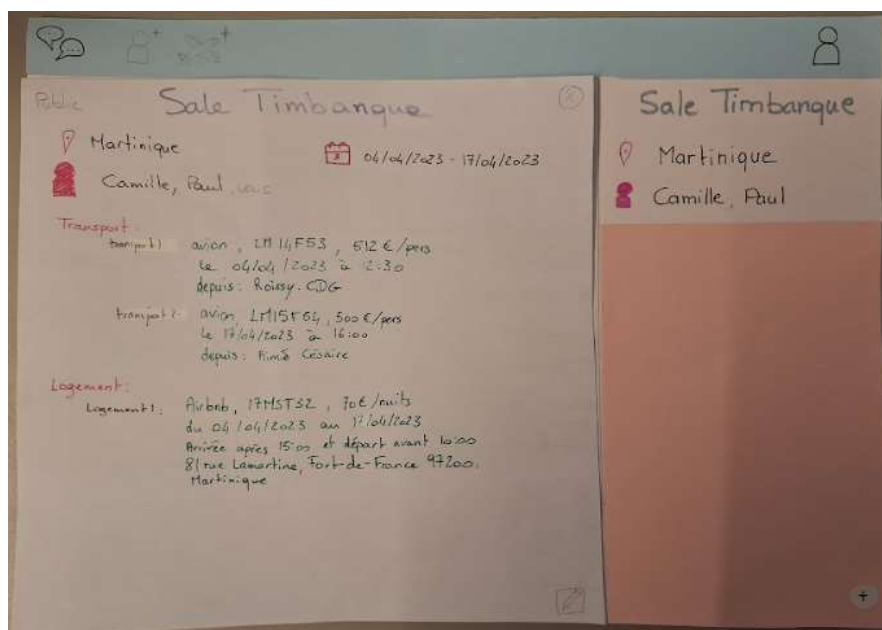 Public
Sale Timbanque
Martinique
04/04/2023 - 17/04/2023
Camille, Paul, vous
Transport:
transport 1 avion, LM14F53, 512 €/pers
le 04/04/2023 à 12:30
depuis: Roissy. CDG
transport 2: avion LM15F64, 500 €/pers
le 17/04/2023 à 16:00
depuis: Aimé Césaire
Logement:
Logement 1: Airbnb, 17MST32, 70€/nuits
du 04/04/2023 au 17/04/2023
Arrivée après 15:00 et départ avant 10:00
81 rue Lamartine, Fort-de-France 97200,
Martinique
Sale Timbanque
Martinique
Camille, Paul
+